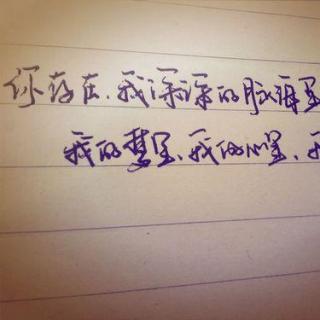 你存在,我深深的脑海里
我的梦里、我的心里、